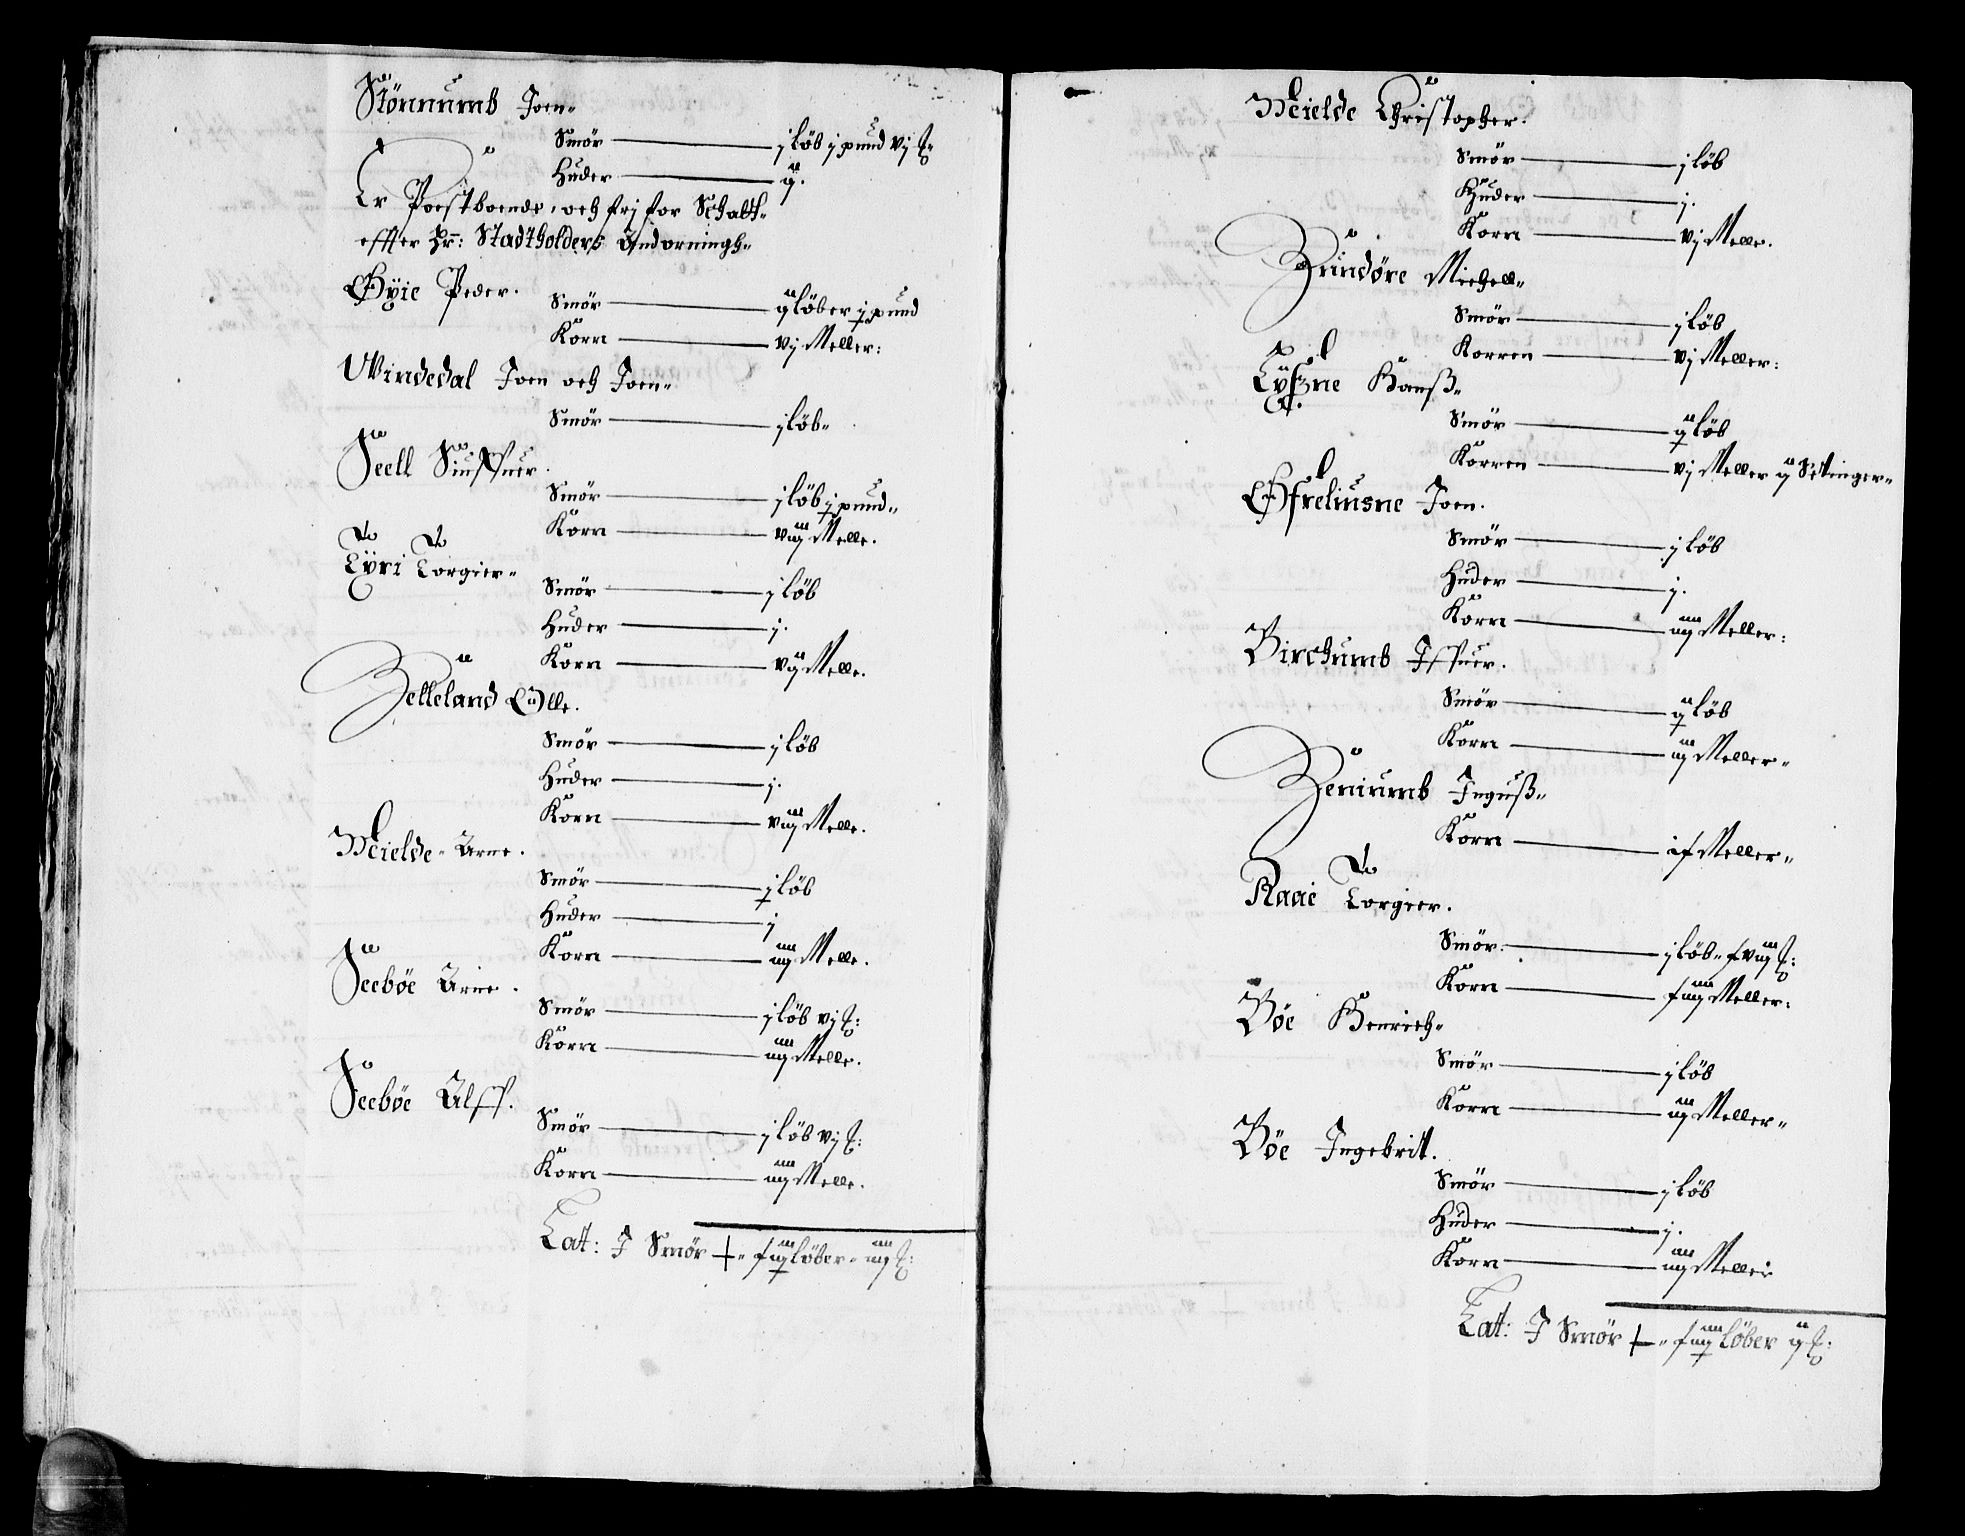 Stönnumb Joen
Smör — j löb j pund vj ℔
Huder — ij.
Er Poestboende, och frj for Schatt
effter Hr: Stadtholders Andorningh
Øyie Peder.
Smör — ij löber j pund
Korn — vj Meller:
Windedal Joen och Joen
Smör — j löb
Feell Siuffuer.
Smör — j löb j pund
Korn — viij Melle.
Tyri Torgier
Smör — j löb
Huder — j.
Korn — vij Melle.
Helleland Olle.
Smör — j löb
Huder — j.
Korn — viij Melle.
Mielde Arne.
Smör — j löb
Huder — j
Korn — iiij Melle.
Seebøe Arne.
Smör — j löb vj ℔:
Korn — iiij Melle.
Seebøe Alff.
Smör — j löb vj ℔:
Korn — iiij Melle.
Lat: J Smör — löber iiij ℔:
Mielde Christopher.
Smör — j löb
Huder — j.
Korn — vj Melle.
Hundøre Michell
Smör — j löb
Korren — vj Meller:
Lysne Hanß
Smör — ij löb
Korren — vj Meller ij Settinger
Øfreliusne Joen.
Smör — j löb
Huder — j.
Korn — iiij Meller:
Birchumb Iffuer.
Smör — ij löb
Korn — iij Meller
Heniumb Inguß
Korn — Meller
Raae Torgier.
Smör — j löb
Korn — Meller:
Bøe Henrich
Smör — j löb
Korn — iiij Meller
Bøe Ingebrit.
Smör — j löb
Huder — j.
Korn — iiij Meller
Lat: J Smör — löber ij ℔: